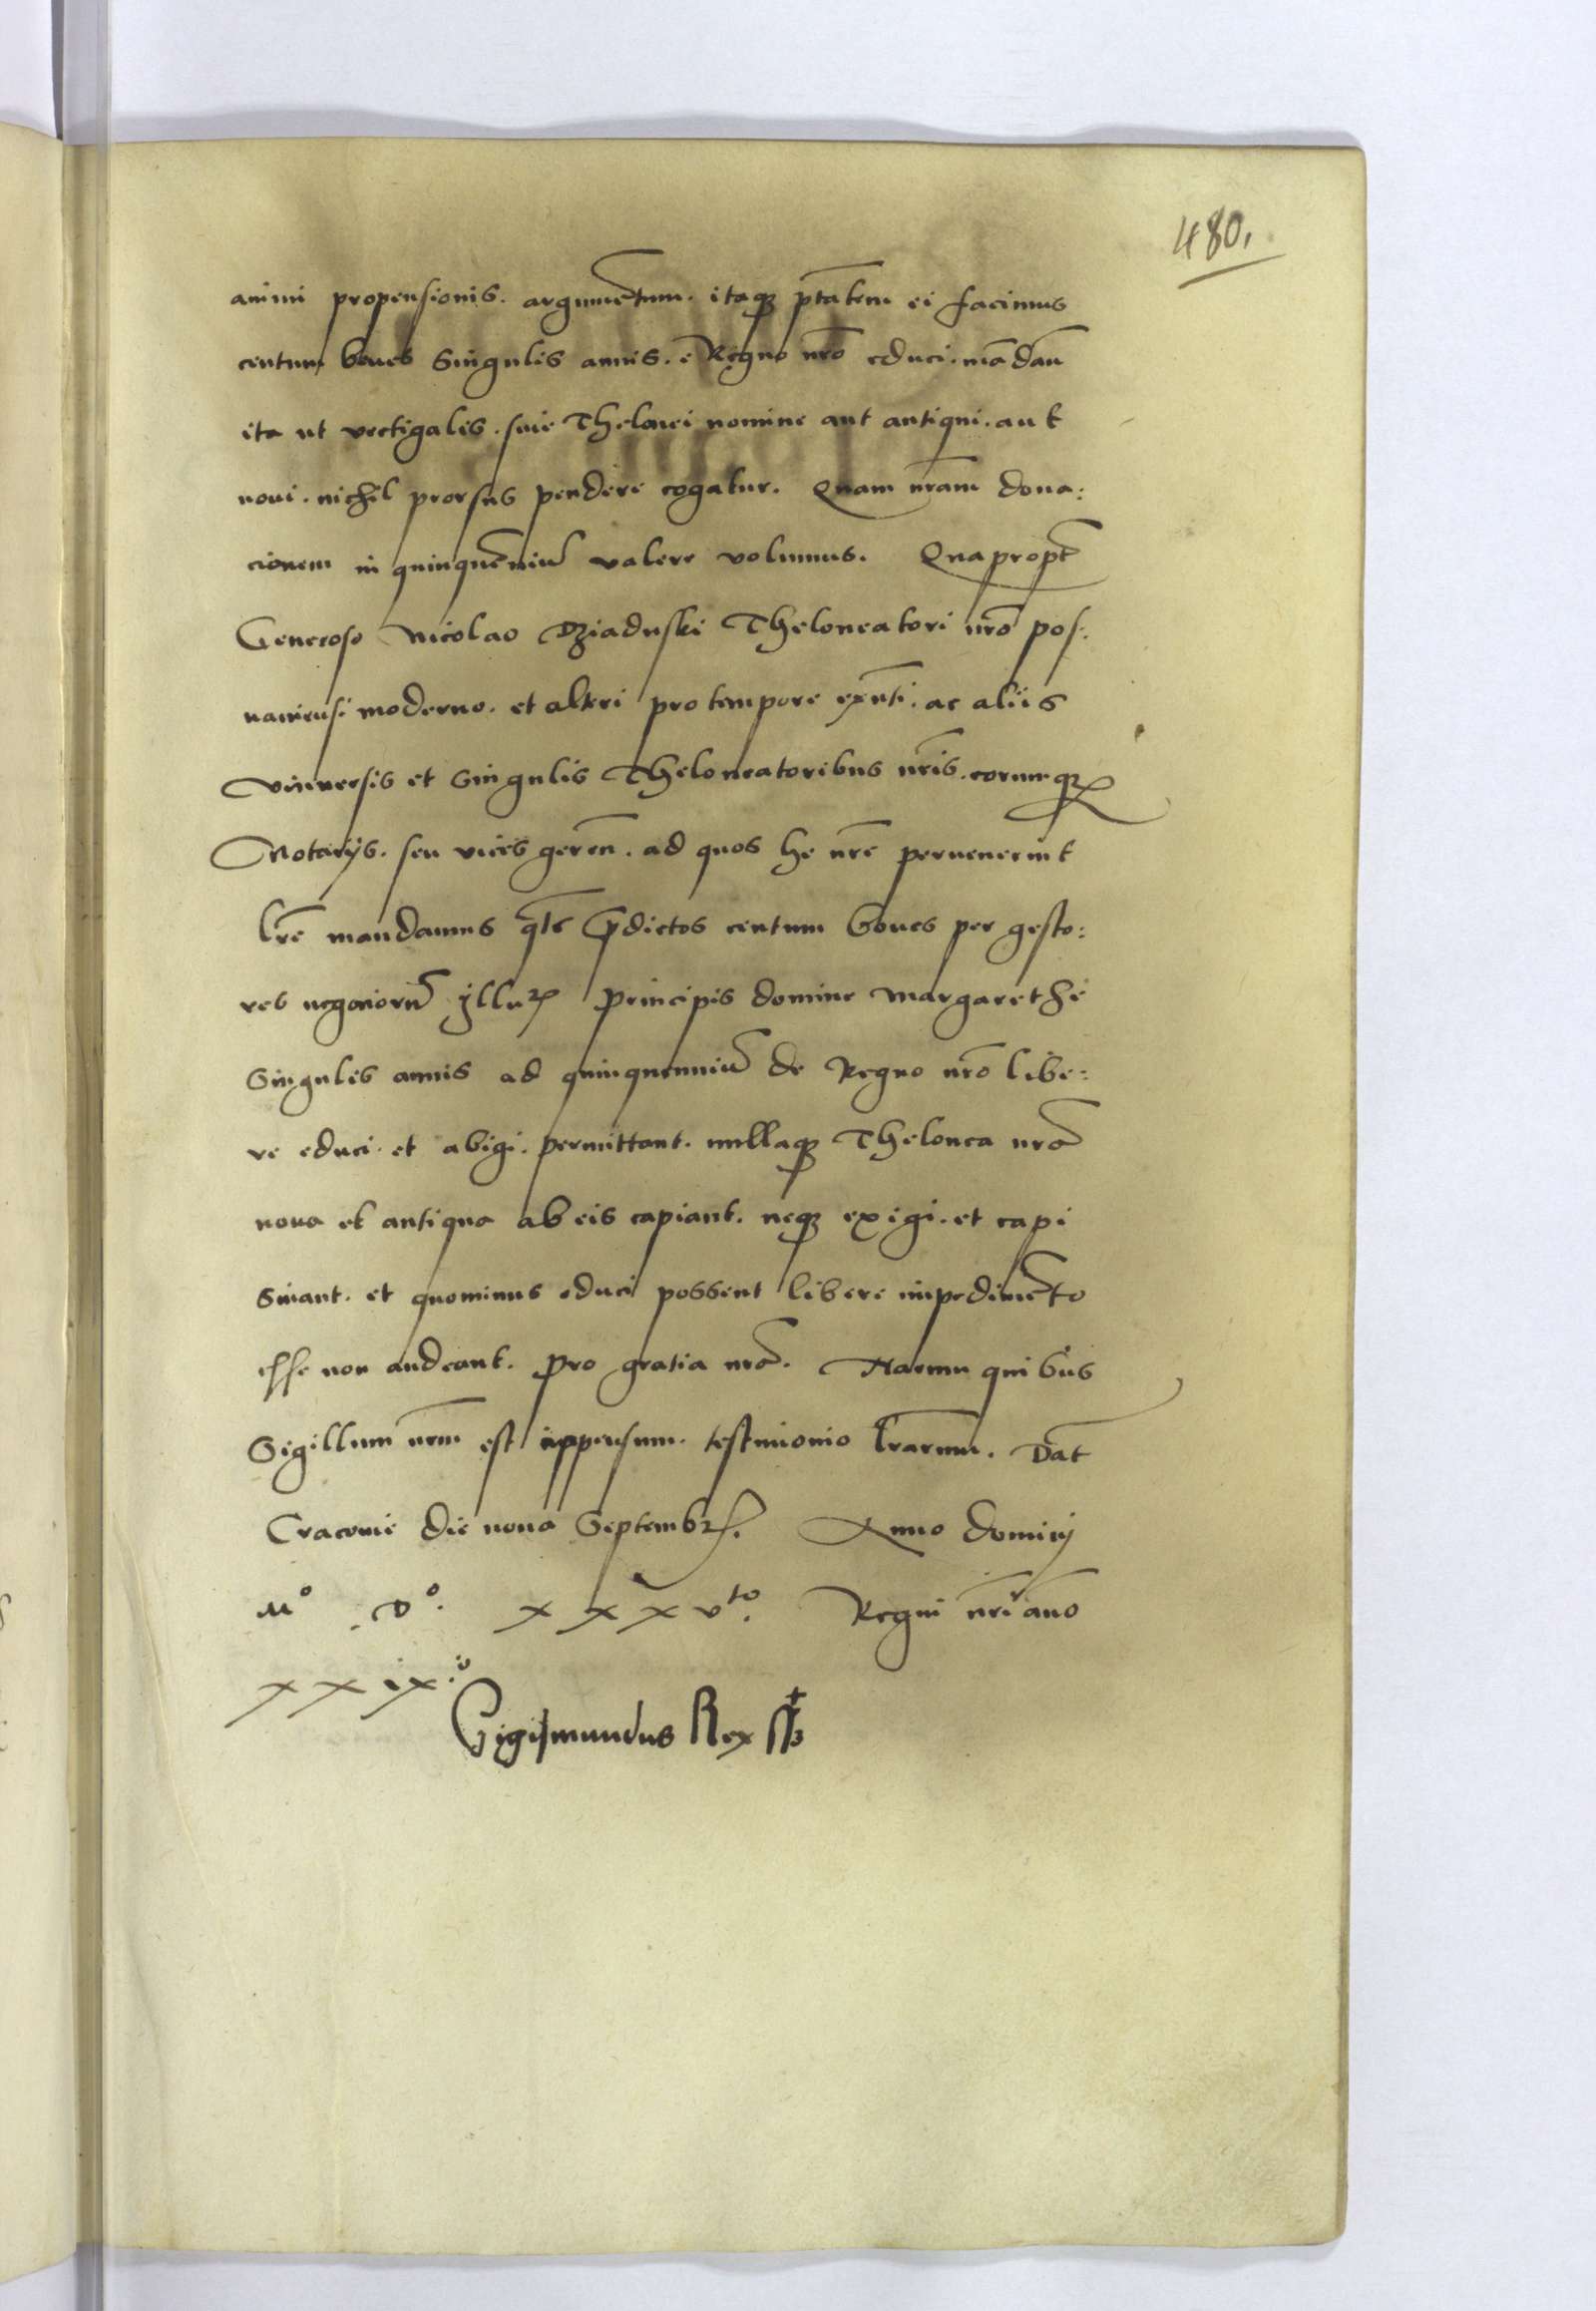 480.
animi propensionis. argumẽtum. itaqꝫ ptãtem ei facimus
centum boues Singulis annis. e Regno nr̃o educi. mãdañ
ita ut vectigalis. siue Thelonei nomine aut antiqui. aut
noui. nichil prorsus pendere cogatur. Quam nr̃am dona:
cionem in quinquẽniũ valere volumus. Quapropt̃
Generoso Nicolao Dziaduski Theloneatori nr̃o pos:
naniens: moderno. et alteri pro tempore exñti. ac aliis
vniuersis et Singulis Theloneatoribus nr̃is. eorumqꝫ
Notarijs. seu vices gereñ. ad quos he nr̃e peruenerint
lr̃e mandamus qt̃s p̃dictos centum boues per gesto:
res negociorũ jllu Principis domine Margarethe
Singulis annis ad quinquenniũ de Regno nr̃o libe:
re educi. et abigi. permittant. nullaqꝫ Thelonea nr̃a
noua et antiqua ab eis capiant. neqꝫ exigi. et capi
Sinant. et quominus educi possent libere impedimẽto
esse non audeant. pro gratia nr̃a. Harum quibus
Sigillum nr̃m est appensum. testimonio lr̃arum. Dat̃
Cracouie die nona Septembr. Anno dominj
Mº Dº. xxxvto. Regni nr̃i ãno
xxix.º
Sigismundus Rex sst